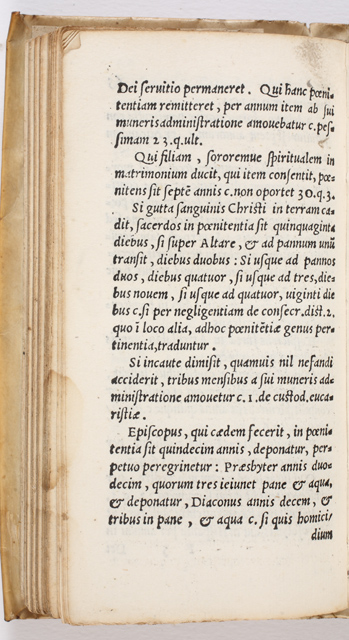 Dei seruitio permaneret. Qui hanc pœni-
tentiam remitteret, per annum item ab sui
muneris administratione amouebatur c. pes-
simam 23. q. ult.
Qui filiam, sororemue spiritualem in
matrimonium ducit, qui item consentit, pœ-
nitens sit septẽ annis c. non oportet 30. q. 3.
Si gutta sanguinis Christi in terram ca-
dit, sacerdos in pœnitentia sit quinquaginta
diebus, si super Altare, & ad pannum unũ
transit, diebus duobus: Si usque ad pannos
duos, diebus quatuor, si usque ad tres, die-
bus nouem, si usque ad quatuor, uiginti die
bus c. si per negligentiam de consecr. dist. 2.
quo ĩ loco alia, adhoc pœnitẽtiæ genus per-
tinentia, traduntur.
Si incaute dimisit, quamuis nil nefandi
acciderit, tribus mensibus a sui muneris ad-
ministratione amouetur c. 1. de custod. euca-
ristiæ.
Episcopus, qui cædem fecerit, in pœni-
tentia sit quindecim annis, deponatur, per-
petuo peregrinetur: Præsbyter annis duo-
decim, quorum tres ieiunet pane & aqua,
& deponatur, Diaconus annis decem, &
tribus in pane, & aqua c. si quis homici/
dium